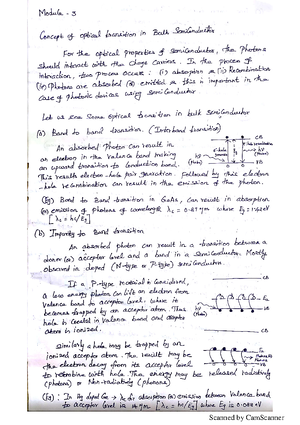 Module - 3
Concept of optical transition in Bulk Semiconductor
For the optical properties of semiconductor, the photons
should interact with the charge carriers. In the process of
interaction, two process occurs: (i) absorption & (ii) Recombination
(iv) Photons are absorbed (or) emitted & this is important in the
case of photonic devices using semiconductor.
Let us see some optical transition in bulk semiconductor
(a) Band to band transition. (Interband transition)
An absorbed Photon can result in
an electron in the valence band making
an upward transition to conduction band.
This results electron-hole pair generation. Followed by this electron
-hole recombination can result in the emission of the photon.
(Eg) Band to Band transition in GaAs, can result in absorption
(or) emission of photons of wavelength
(b) Impurity to Band transition
An absorbed photon can result in a transition between a
donor (or) acceptor level and a band in a semiconductor. Mostly
observed in doped (N-type or P-type) semiconductor.
If a P-type material is considered,
a low energy photon can lift an electron from
valence band to acceptor level, where it
becomes trapped by an acceptor atom. Thus
hole is created in valence band and acceptor
atom is ionised.
Similarly a hole may be trapped by an
ionized acceptor atom. The result may be
the electron decay from its acceptor level
to recombine with hole. The energy may be released radiatively
(photon) or Non-radiatively (phonons)
CB
VB
CB
VB
CB
VB
Scanned by CamScanner